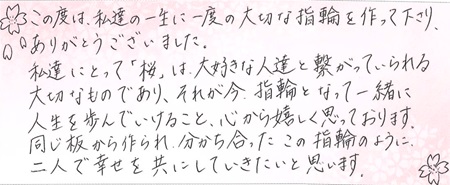 この度は、私達の一生に一度の大切な指輪を作って下さり、
ありがとうございました。
私達にとって「桜」は、大好きな人達と繋がっていられる
大切なものであり、それが今、指輪となって一緒に
人生を歩んでいけること、心から嬉しく思っております。
同じ板から作られ、分かち合ったこの指輪のように、
二人で幸せを共にしていきたいと思います。